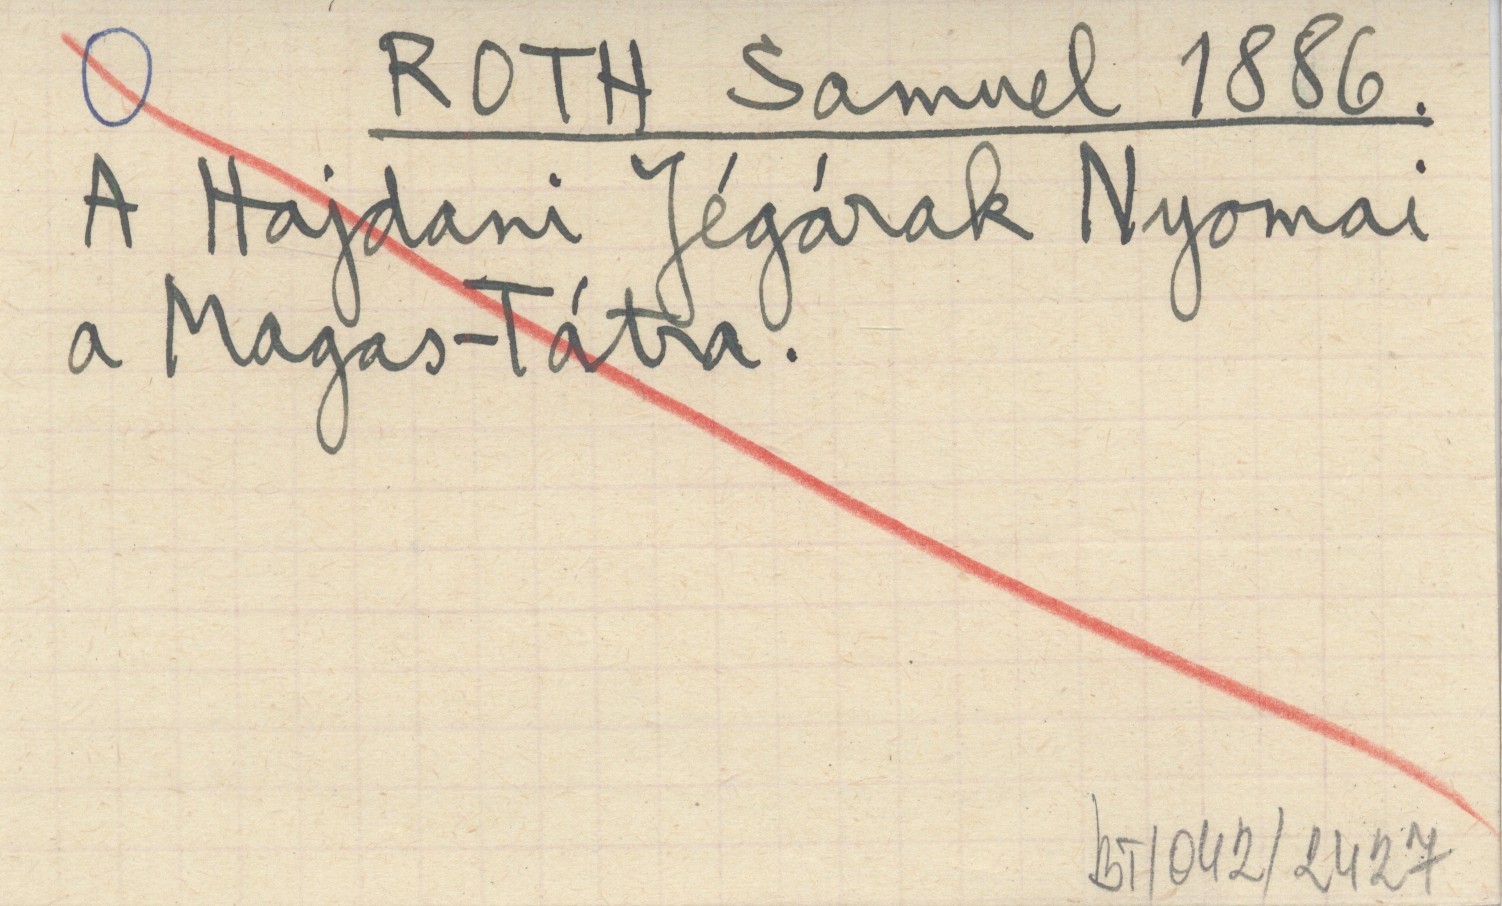 O ROTH Samuel 1886.
A Hajdani Jégárak Nyomai
a Magas-Tátra.
BT/042/2427